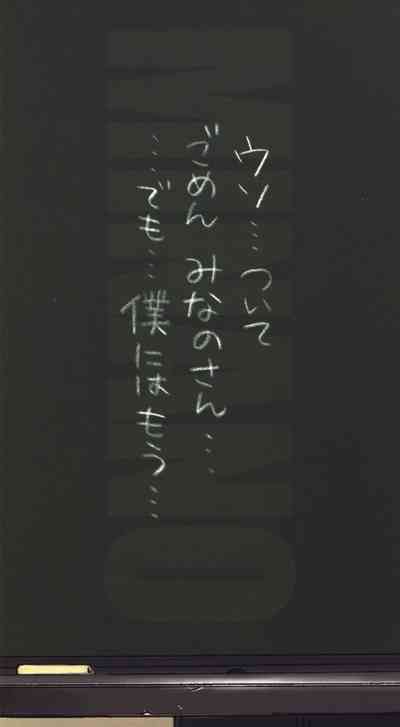 ウソ…ついて
ごめん みなのさん…
…でも…僕にはもう…